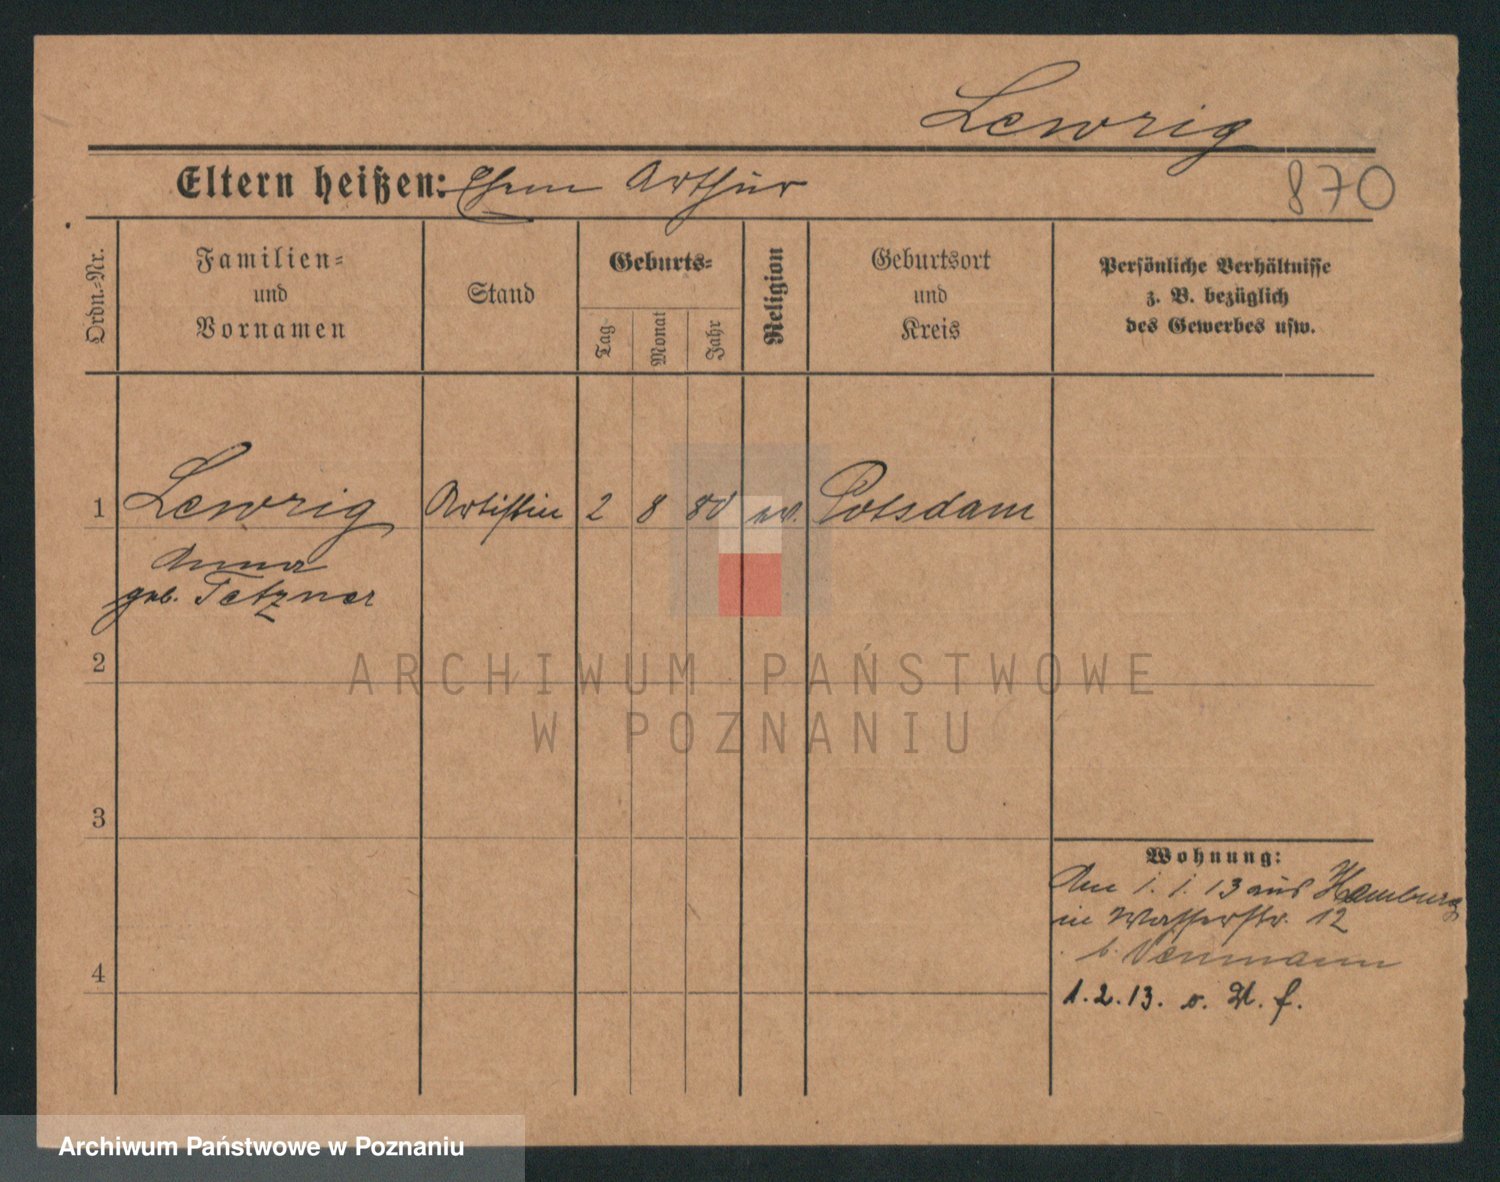 Lewrig
Eltern heißen: Ehem Arthur
870
Ordn.-Nr.
Familien-
und
Vornamen
Stand
Geburts-
Tag
Monat
Jahr
Religion
Geburtsort
und
Kreis
Persönliche Verhältnisse
z. B. bezüglich
des Gewerbes usw.
1 Lewrig Artistin 2 8 80 ev. Potsdam
Anna
geb. Tetzner
2
ARCHIWUM PAŃSTWOWE
W POZNANIU
3
Wohnung:
Am 1. 1. 13 aus Hamburg
in Wasserstr. 12
b. Venmann
4
1.2.13. o. A. f.
Archiwum Państwowe w Poznaniu